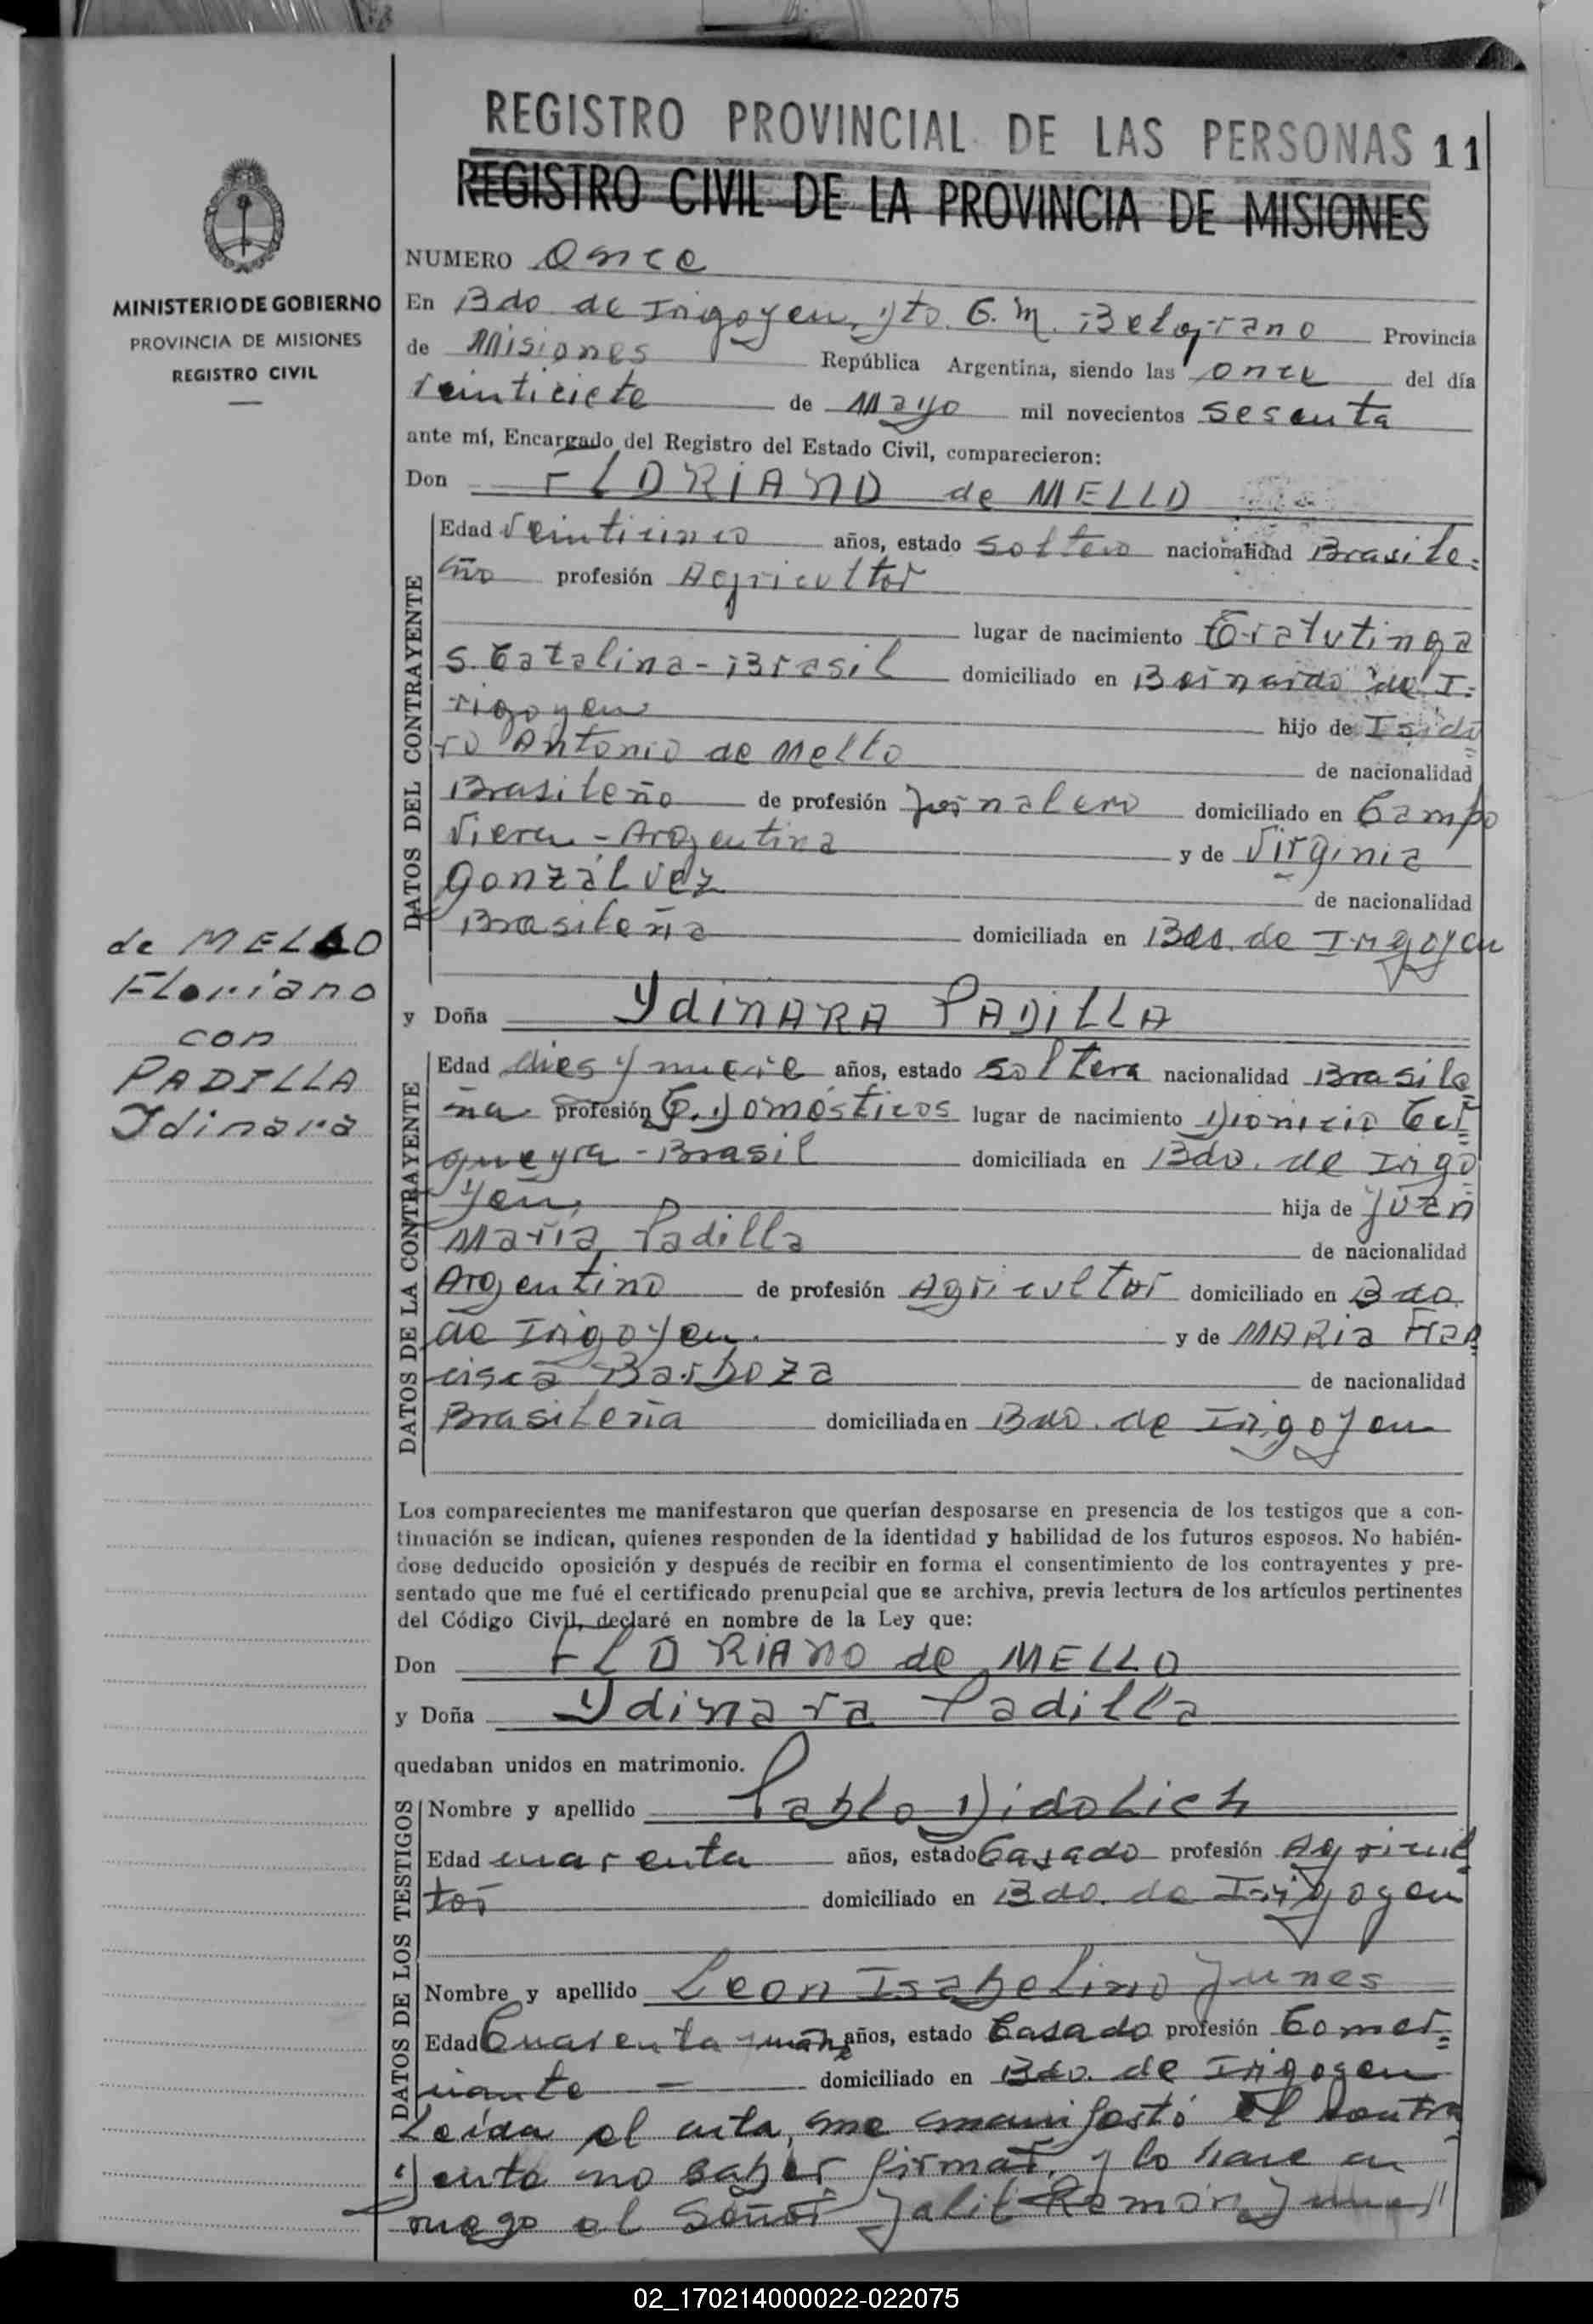 REGISTRO PROVINCIAL DE LAS PERSONAS 11
REGISTRO CIVIL DE LA PROVINCIA DE MISIONES
MINISTERIO DE GOBIERNO
PROVINCIA DE MISIONES
REGISTRO CIVIL
NUMERO Once
En Bdo de Irigoyen, Dto. G. M. Belgrano Provincia
de Misiones República Argentina, siendo las once del día
Veinticiete de Mayo mil novecientos Sesenta
ante mí, Encargado del Registro del Estado Civil, comparecieron:
Don FLORIANO de MELLO
DATOS DEL CONTRAYENTE
Edad Veinticinco años, estado Soltero nacionalidad Brasile=
ño profesión Agricultor
lugar de nacimiento Cratutinga
S. Catalina - Brasil domiciliado en Bernardo de I=
rigoyen hijo de Isido
ro Antonio de Mello de nacionalidad
Brasileño de profesión Jornalero domiciliado en Campo
Viera - Argentina y de Virginia
Gonzálvez de nacionalidad
Brasileña domiciliada en Bdo. de Irigoyen
de MELLO
Floriano
con
PADILLA
Idinara
y Doña YdiNARA PADiLLA
DATOS DE LA CONTRAYENTE
Edad dies y nueve años, estado Soltera nacionalidad Brasile
ña profesión Q. Domésticos lugar de nacimiento Dionicio Cer=
queyra - Brasil domiciliada en Bdo. de Irigo
yen, hija de Juan
María Padilla de nacionalidad
Argentino de profesión Agricultor domiciliado en Bdo.
de Irigoyen. y de MARia Fran
cisca Barboza de nacionalidad
Brasileña domiciliada en Bdo. de Irigoyen
Los comparecientes me manifestaron que querían desposarse en presencia de los testigos que a con-
tinuación se indican, quienes responden de la identidad y habilidad de los futuros esposos. No habién-
dose deducido oposición y después de recibir en forma el consentimiento de los contrayentes y pre-
sentado que me fué el certificado prenupcial que se archiva, previa lectura de los artículos pertinentes
del Código Civil, declaré en nombre de la Ley que:
Don FLORiANO de MELLO
y Doña Ydinara Padilla
quedaban unidos en matrimonio.
DATOS DE LOS TESTIGOS
Nombre y apellido Pablo Didolich
Edad cuarenta años, estado Casado profesión Agricul
tor domiciliado en Bdo. de Irigoyen
Nombre y apellido Leon Isabelino Junes
Edad Cuarenta años, estado Casado profesión Comer=
ciante - domiciliado en Bdo. de Irigoyen
Leída el acta, me manifestó el contra
yente no saber firmar, y lo hace en
ruego el Señor Jalil Remón Junes
02_170214000022-022075